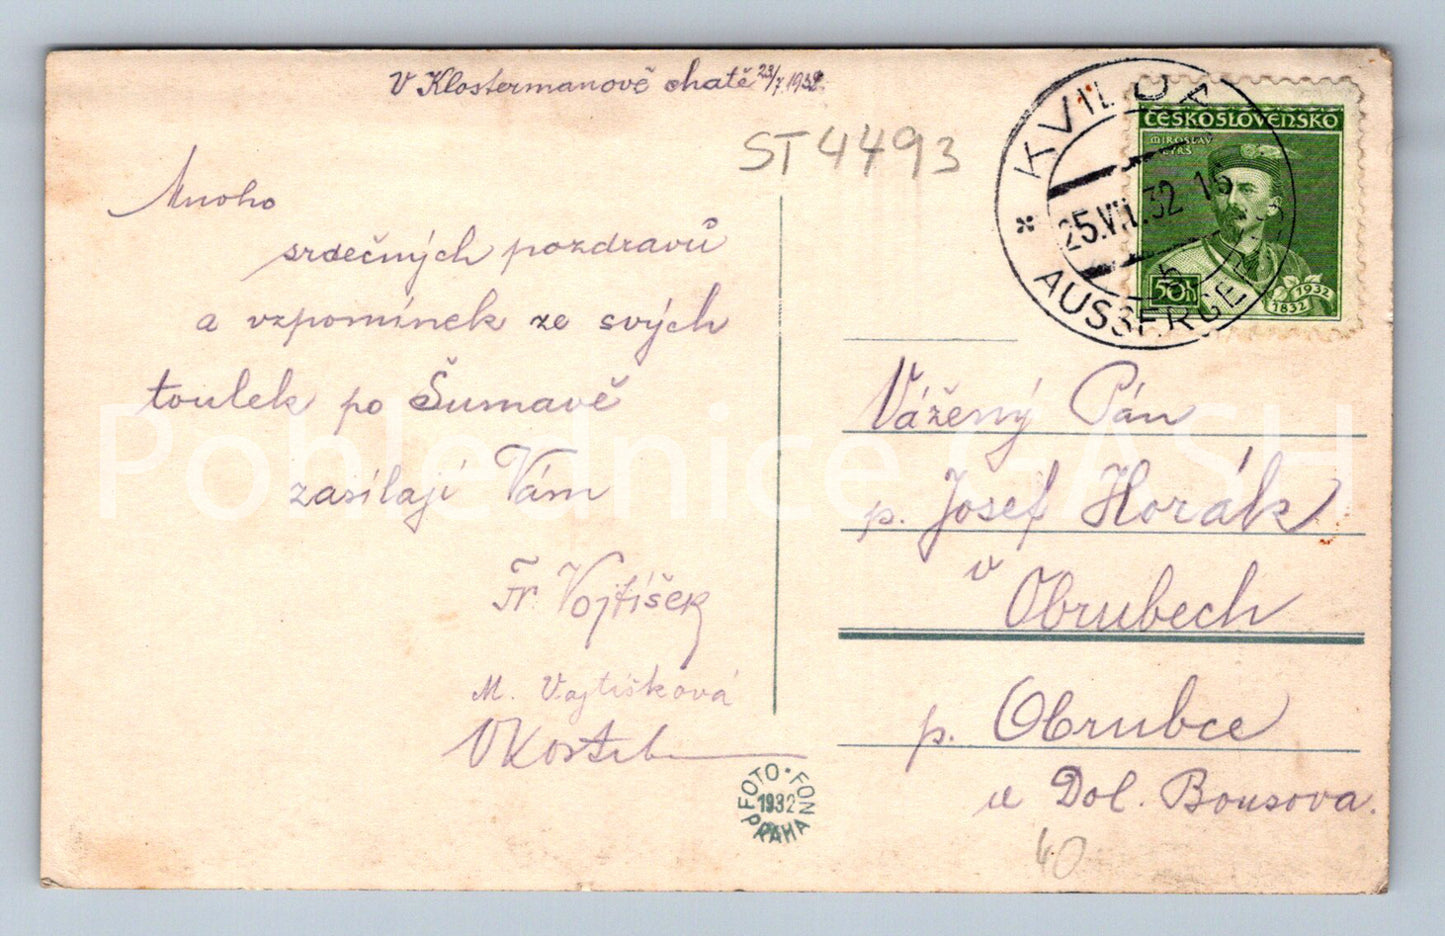 V Klostermanově chatě 23/7 1932.
ST 4493
Mnoho
srdečných pozdravů
a vzpomínek ze svých
toulek po Šumavě
zasílají Vám
Fr. Vojtíšek
M. Vojtíšková
KVILDA
25.VII.32 16
AUSSERGEFILD
ČESKOSLOVENSKO
MIROSLAV
TYRŠ
50h
1932
1832
Vážený Pán
p. Josef Horák
v
Obrubech
p. Obrubce
u Dol. Bousova.
40
FOTO-FON
1932
PRAHA
Pohlednice GASH